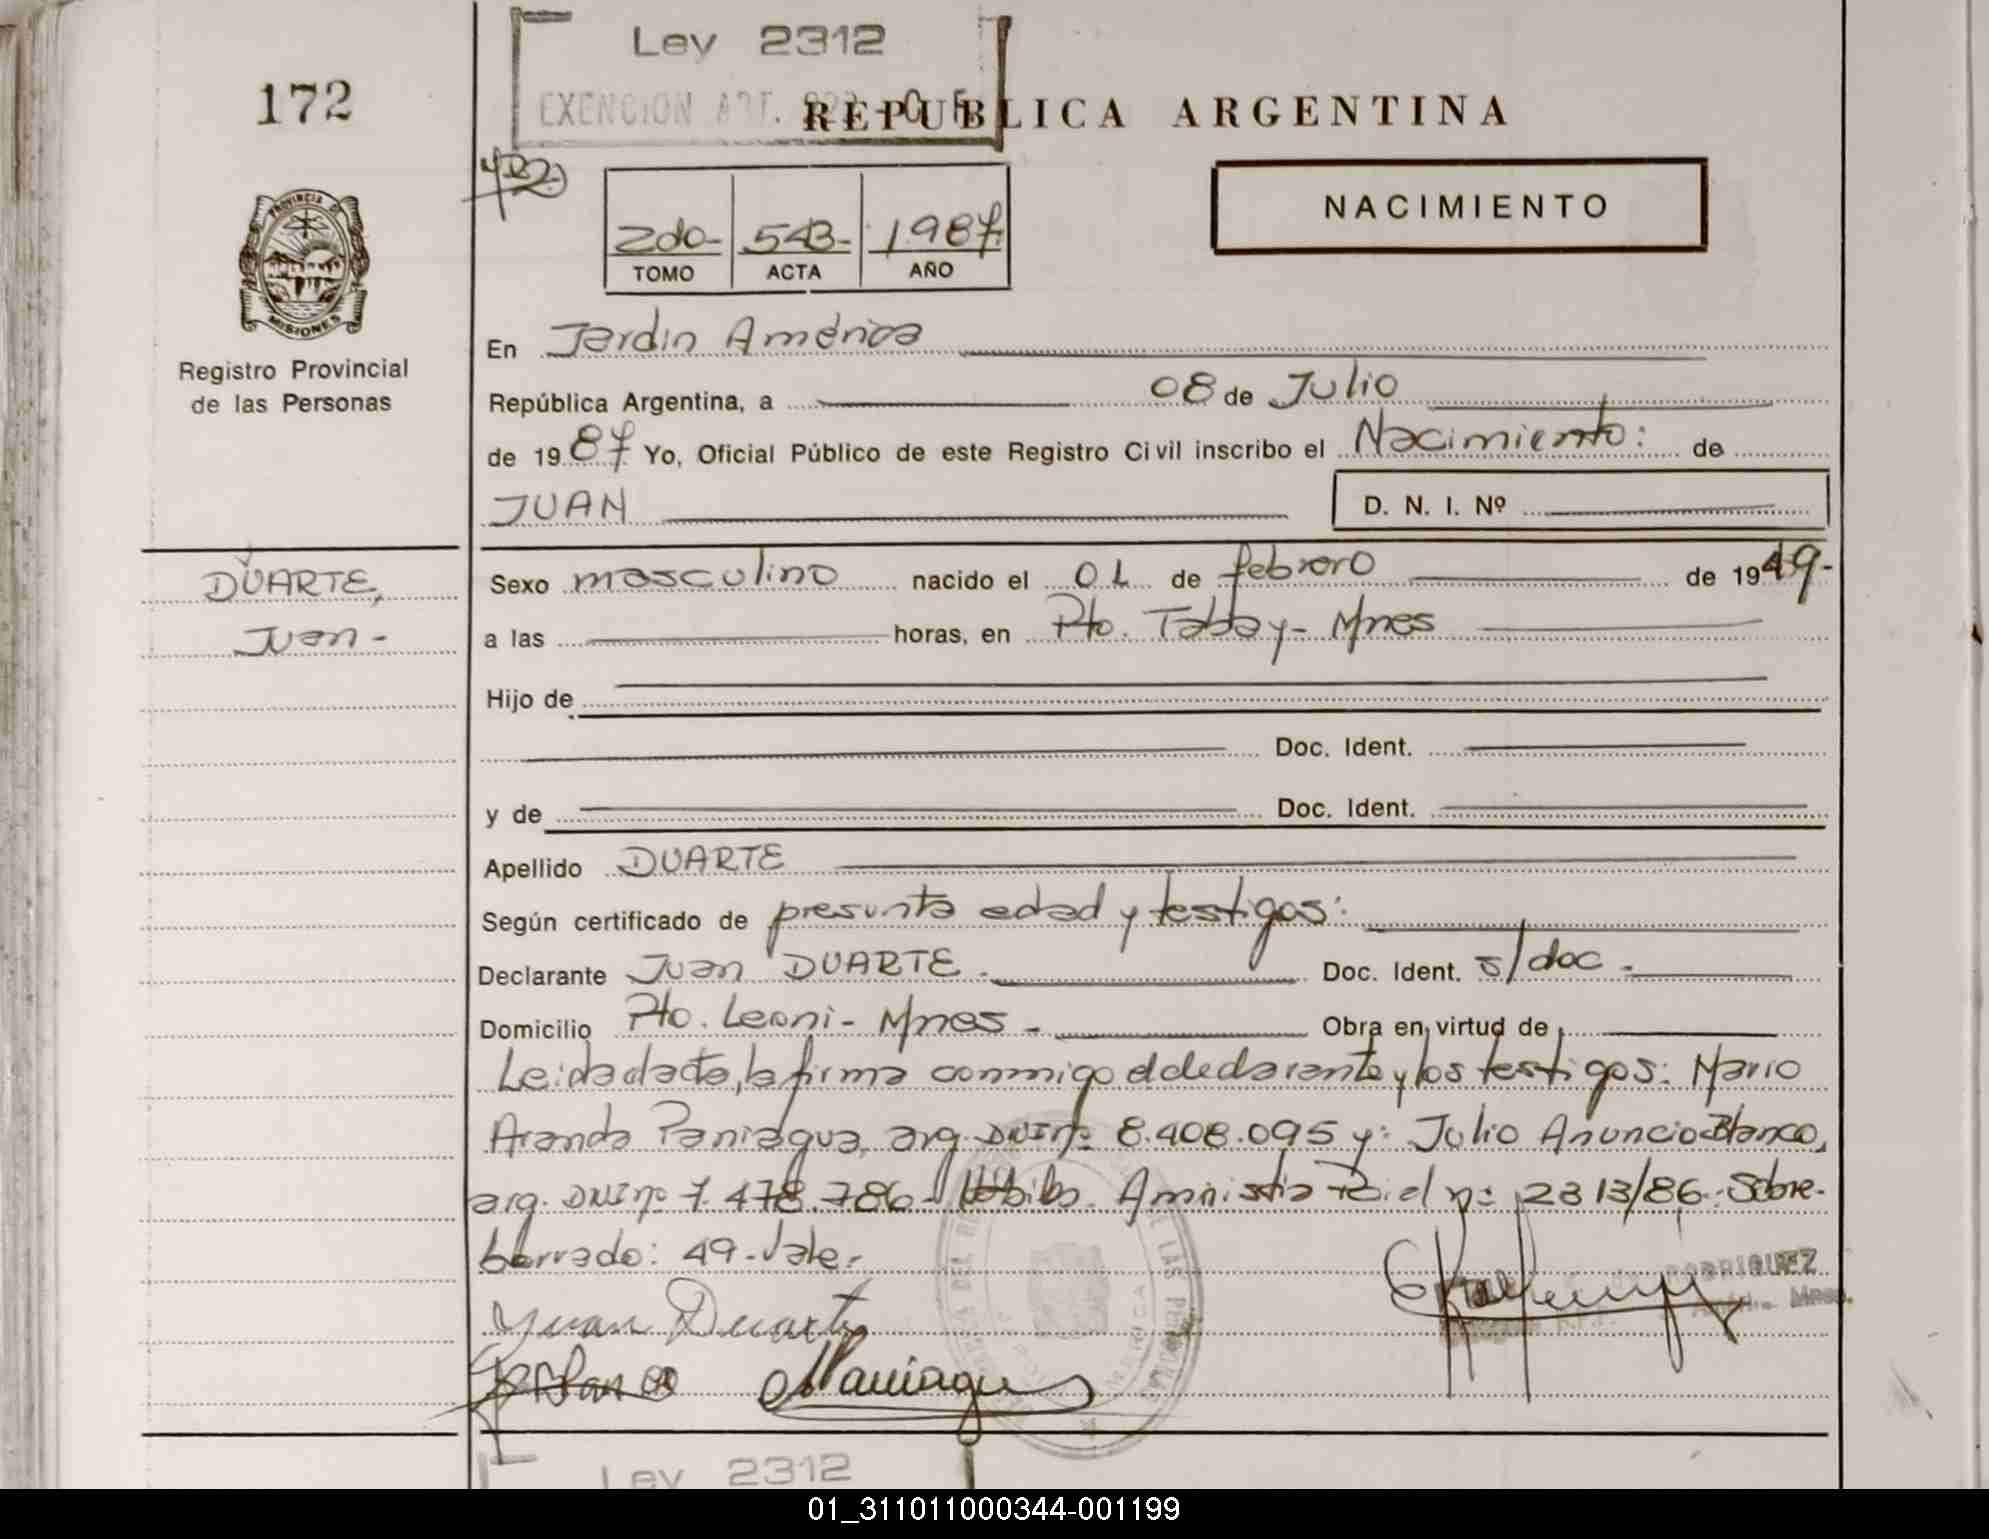 Ley 2312
EXENCION ART.
172
REPUBLICA ARGENTINA
NACIMIENTO
2do- 543- 1987
TOMO ACTA AÑO
PROVINCIA DE
MISIONES
Registro Provincial
de las Personas
En Jardin América
República Argentina, a 08 de Julio
de 1987 Yo, Oficial Público de este Registro Civil inscribo el Nacimiento: de
JUAN D. N. I. Nº
DUARTE,
Juan-
Sexo masculino nacido el 01 de febrero de 1949-
a las horas, en Pto. Tabay- Mnes
Hijo de
Doc. Ident.
y de Doc. Ident.
Apellido DUARTE
Según certificado de presunta edad y testigos:
Declarante Juan DUARTE.- Doc. Ident. s/doc.-
Domicilio Pto. Leoni- Mnes.- Obra en virtud de
Leida el acta, la firma conmigo el declarante y los testigos: Mario
Aranda Paniagua, arg. DNI nº 8.408.095 y: Julio Anuncio Blanco,
arg. DNI nº 7.478.786- Amnistia nº 2313/86.- Sobre-
borrado: 49-Vale.-
Juan Duarte
RODRIGUEZ
Ley 2312
01_311011000344-001199